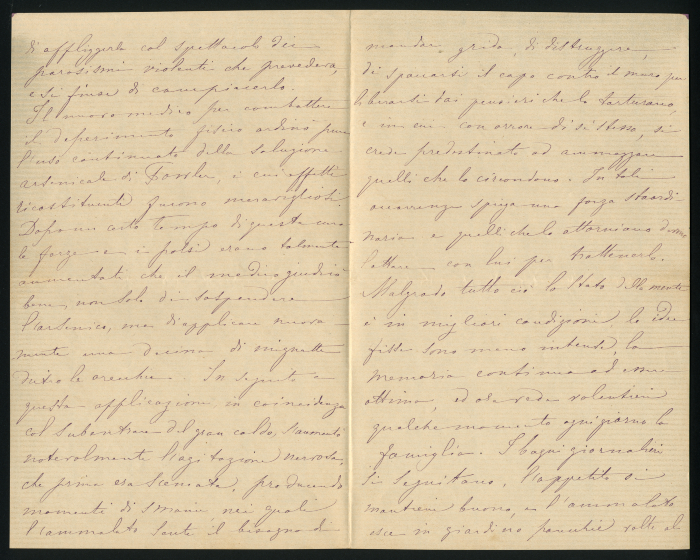 di affliggerla col spettacolo dei
parosismi violenti che prevedeva,
e si finse di compiacerlo.
Il nuovo medico per combattere
il deperimento fisico ordinò pure
l'uso continuato della soluzione
arsenicale di Fowler, i cui effetti
ricostituenti furono meravigliosi.
Dopo un certo tempo di questa cura
le forze e i polsi erano talmente
aumentati che il medico giudicò
bene non solo di sospendere
l'arsenico, ma di applicare nuova-
mente una decina di mignatte
dietro le orecchie. In seguito a
questa applicazione in coincidenza
col subentrare del gran caldo, s'aumentò
notevolmente l'agitazione nervosa,
che prima era scemata, producendo
momenti di smanie nei quali
l'ammalato sente il bisogno di
mandar grida, di distruggere,
di spaccarsi il capo contro il muro per
liberarsi dai pensieri che lo torturano,
e in cui con orrore di sè stesso, si
crede predestinato ad ammazzare
quelli che lo circondono. In tali
occorrenze spiega una forza straordi
naria e quelli che lo attorniano devono
lottare con lui per trattenerlo.
Malgrado tutto ciò lo stato della mente
è in migliori condizioni, le idee
fisse sono meno intense, la
memoria continua ad essere
ottima, ed ora vede volentieri
qualche momento ogni giorno la
famiglia. I bagni giornalieri
si seguitano, l'appetito si
mantiene buono, e l'ammalato
esce in giardino parecchie volte al